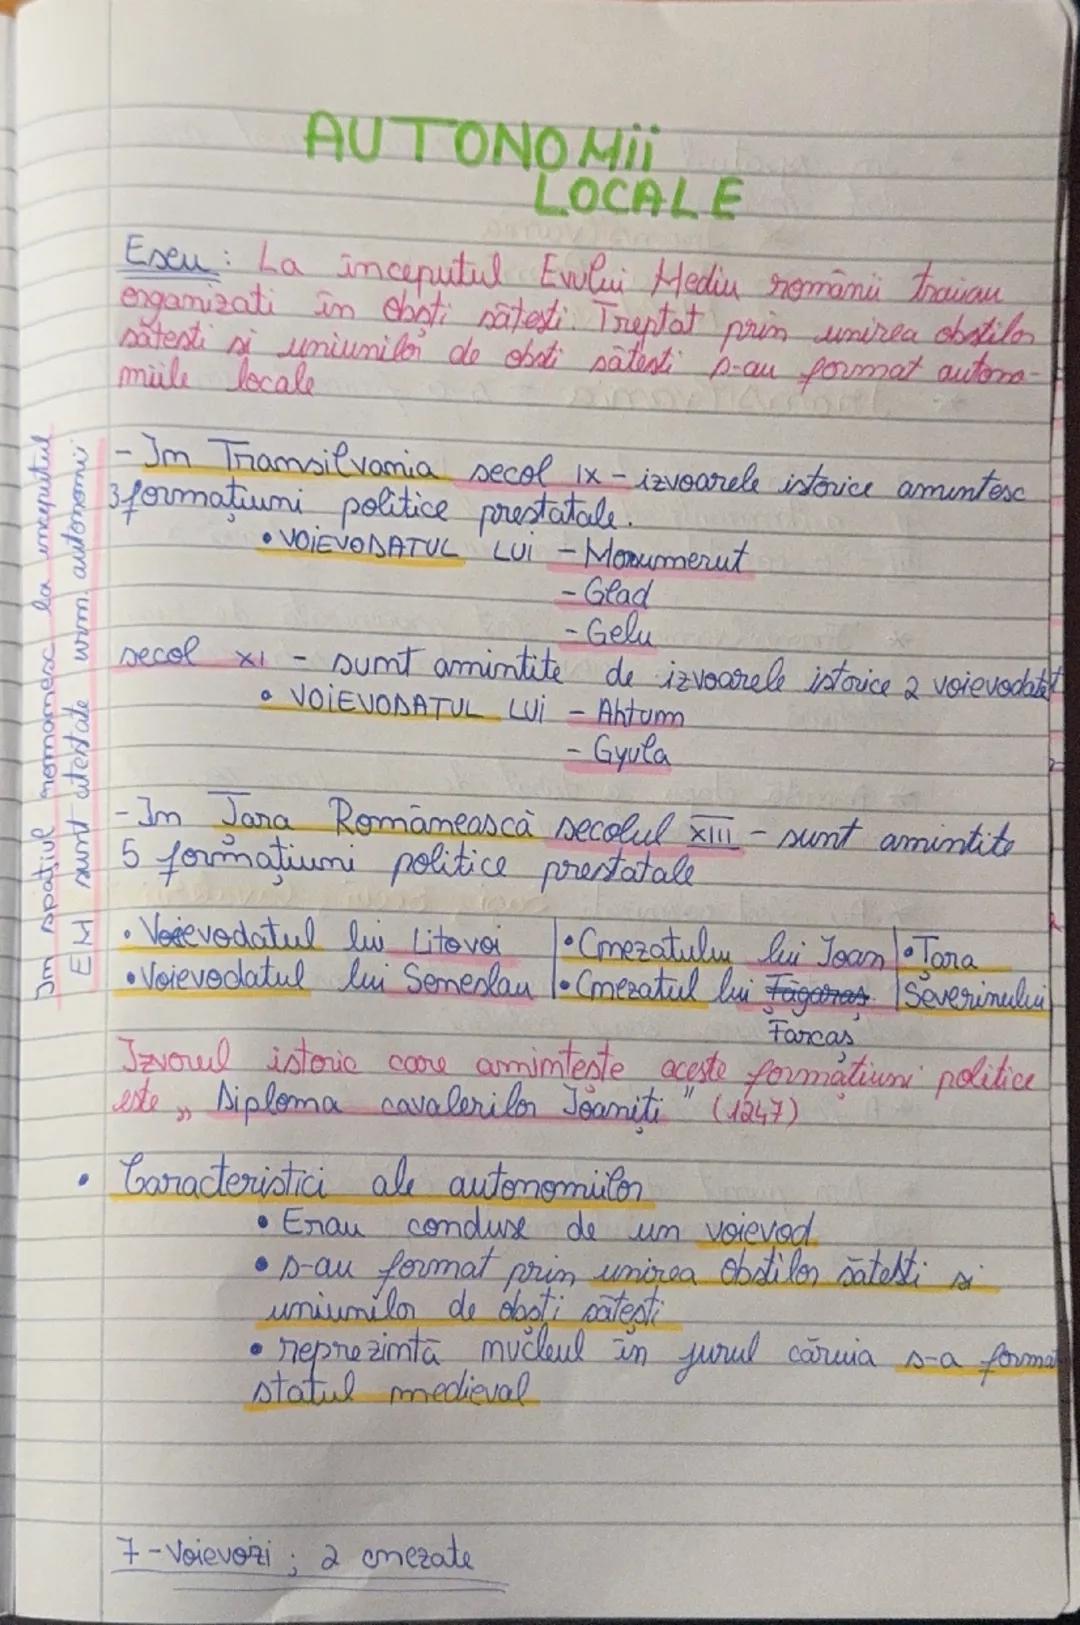 AUTONOMii
LOCALE
Eseu: La inceputul Evului Mediu românii traiau
organizati în obsti sătesti. Treptat prin unirea obstilor
sătesti si uniunilor de obsti sătesti s-au format autono-
miile locale
În spațiul romanesc la inceputul
EM sunt atestate urm. autonomii
- În Transilvania secol IX - izvoarele istorice amintesc
3 formațiuni politice prestatale.
• VOiEVODATUL LUi - Morumerut
- Glad
- Gelu
secol XI - sunt amintite de izvoarele istorice 2 voievodate
• VOiEVODATUL LUi - Ahtum
- Gyula
- În Țara Românească secolul XIII - sunt amintite
5 formațiuni politice prestatale
• Voievodatul lui Litovoi |• Cnezatului lui Ioan |• Țara
• Voievodatul lui Semeslau |• Cnezatul lui Făgaraș | Severinului
Farcaș
Izvorul istoric care aminteste aceste formațiuni politice
este „ Diploma cavalerilor Ioaniți " (1247)
• Caracteristici ale autonomiilor
• Erau conduse de un voievod
• s-au format prin unirea obstilor sătesti si
uniunilor de obsti sătesti
• reprezintă nucleul în jurul căruia s-a format
statul medieval
7 - Voievozi ; 2 cnezate